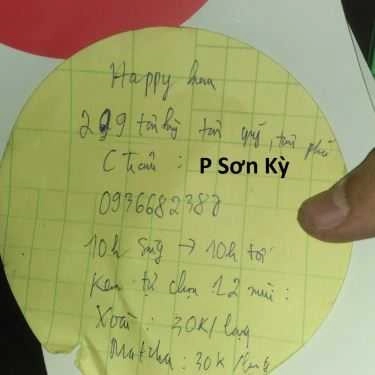 Happy
299 tân kỳ tân quý, tân phú
C Trân : P Sơn Kỳ
0936682387
10h sáng → 10h tối
Kem tự chọn 12 mùi :
Xoài : 30K/
Matcha : 30K/